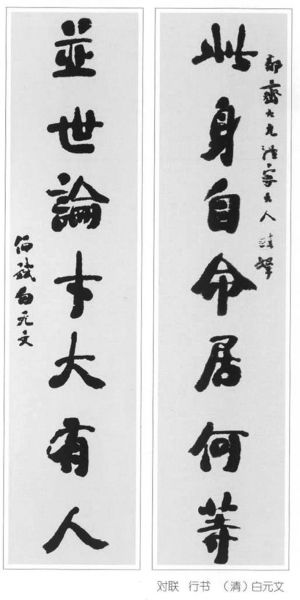 齋大兄法家大人
此身自命居何等
並世論才大有人
白元文
对联 行书 （清）白元文